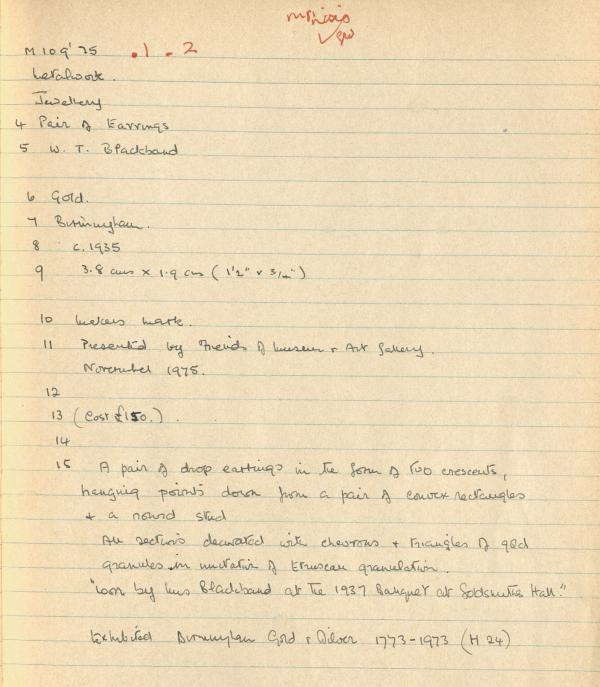 M109'75 .1 - 2
Metalwork.
Jewellery
4 Pair of Earrings
5 W. T. Blackband
6 Gold.
7 Birmingham.
8 c. 1935
9 3.8 cms x 1.9 cms (1½" x 3/4")
10 Makers mark.
11 Presented by Friends of Museum + Art Gallery.
November 1975.
12
13 (Cost £150.)
14
15 A pair of drop earrings in the form of two crescents,
hanging points down from a pair of convex rectangles
+ a round stud
All sections decorated with chevrons + triangles of gold
granules in imitation of Etruscan granulation.
"Worn by Mrs Blackband at the 1937 Banquet at Goldsmiths Hall."
Exhibited Birmingham Gold + Silver 1773-1973 (H 24)